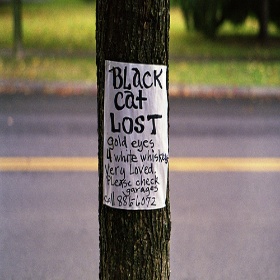 BLACK
cat
LOST
gold eyes
4 white whiskers
very loved.
Please check
garages
call 886-6092